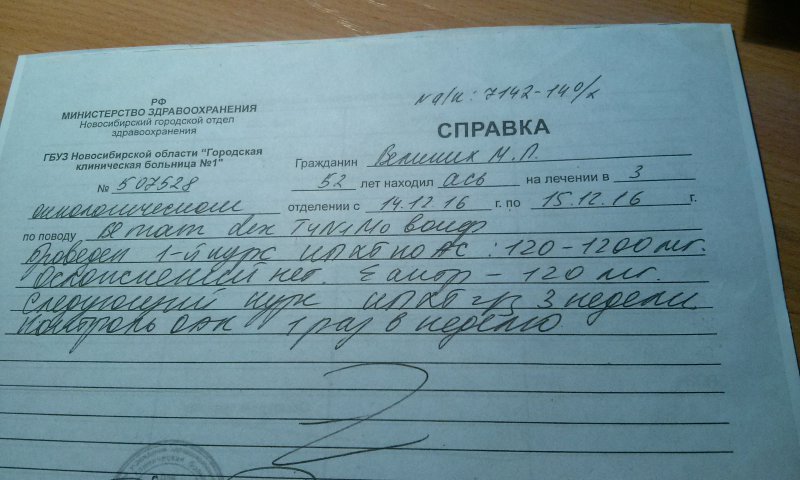 № а/к: 7142-140/х
РФ
МИНИСТЕРСТВО ЗДРАВООХРАНЕНИЯ
Новосибирский городской отдел
здравоохранения
СПРАВКА
ГБУЗ Новосибирской области "Городская
клиническая больница №1"
Гражданин М.П.
№ 507528
52 лет находил ась на лечении в 3
онкологическом отделении с 14.12.16 г. по 15.12.16 г.
по поводу mam dex T4N1M0
Проведен 1-й курс ПХТ по АС : 120-1200 мг.
Осложнений нет. Σ - 120 мг.
Следующий курс ПХТ ч/з 3 недели
контроль ОАК 1 раз в неделю